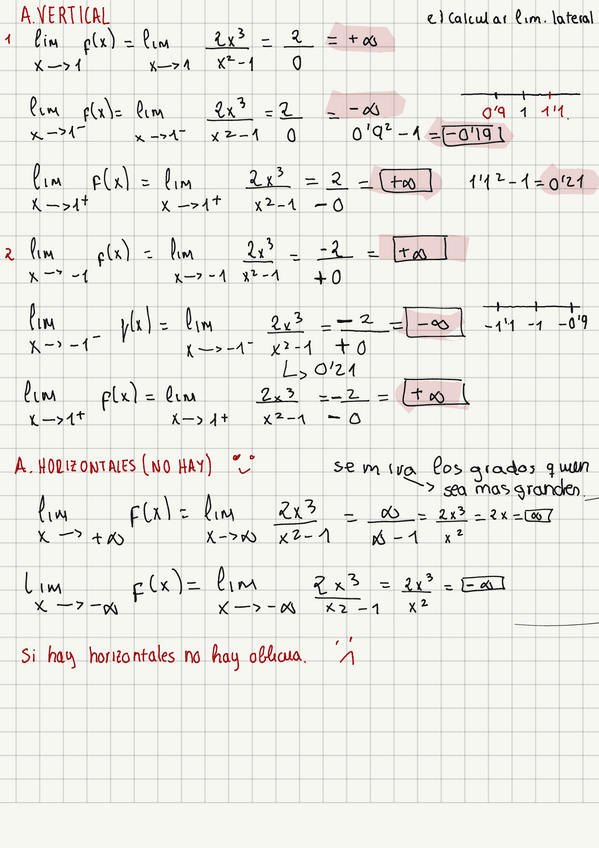 A. VERTICAL e) Calcular lim. lateral
1 lim x→1 f(x) = lim x→1 2x³/x²-1 = 2/0 = +∞
0'9 1 1'1.
lim x→1⁻ f(x) = lim x→1⁻ 2x³/x²-1 = 2/0 = -∞ 0'9²-1 = -0'19
lim x→1⁺ f(x) = lim x→1⁺ 2x³/x²-1 = 2/-0 = +∞ 1'1²-1 = 0'21
2 lim x→-1 f(x) = lim x→-1 2x³/x²-1 = -2/+0 = +∞
lim x→-1⁻ f(x) = lim x→-1⁻ 2x³/x²-1 = -2/+0 = -∞ -1'1 -1 -0'9
↳ 0'21
lim x→1⁺ f(x) = lim x→1⁺ 2x³/x²-1 = -2/-0 = +∞
A. HORIZONTALES (NO HAY) se mira los grados quien
→ sea mas grande.
lim x→+∞ f(x) = lim x→∞ 2x³/x²-1 = ∞/∞-1 = 2x³/x² = 2x = ∞
lim x→-∞ f(x) = lim x→-∞ 2x³/x²-1 = 2x³/x² = -∞
Si hay horizontales no hay oblicua.